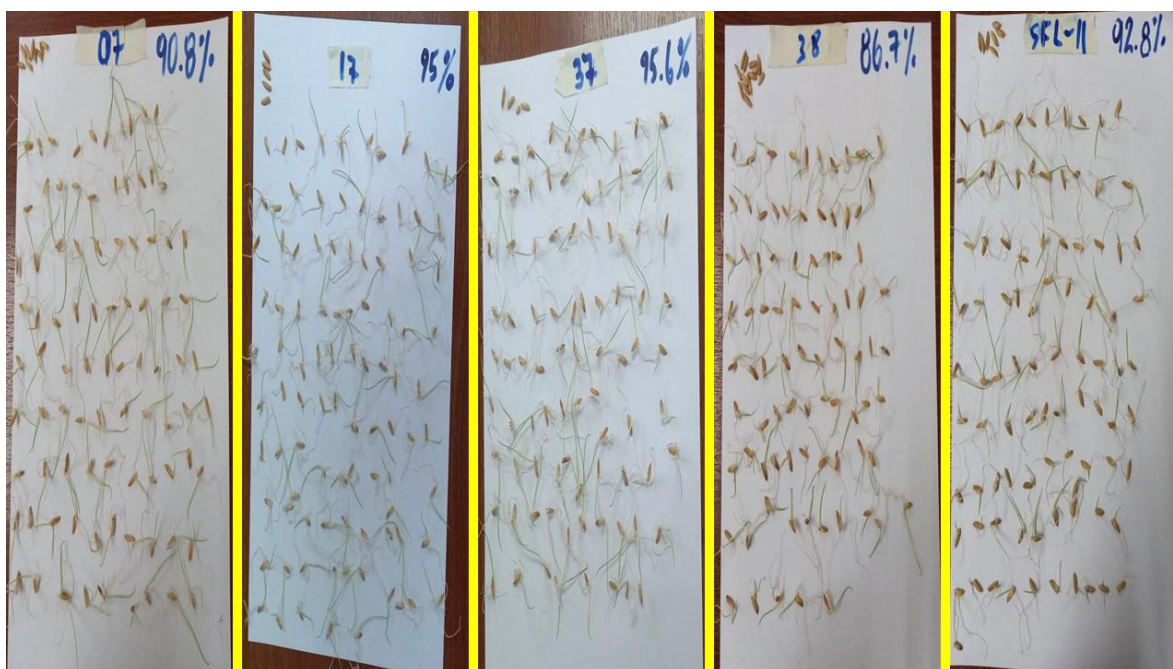 07 90.8%
17 95%
37 95.6%
38 86.7%
SFL-11 92.8%